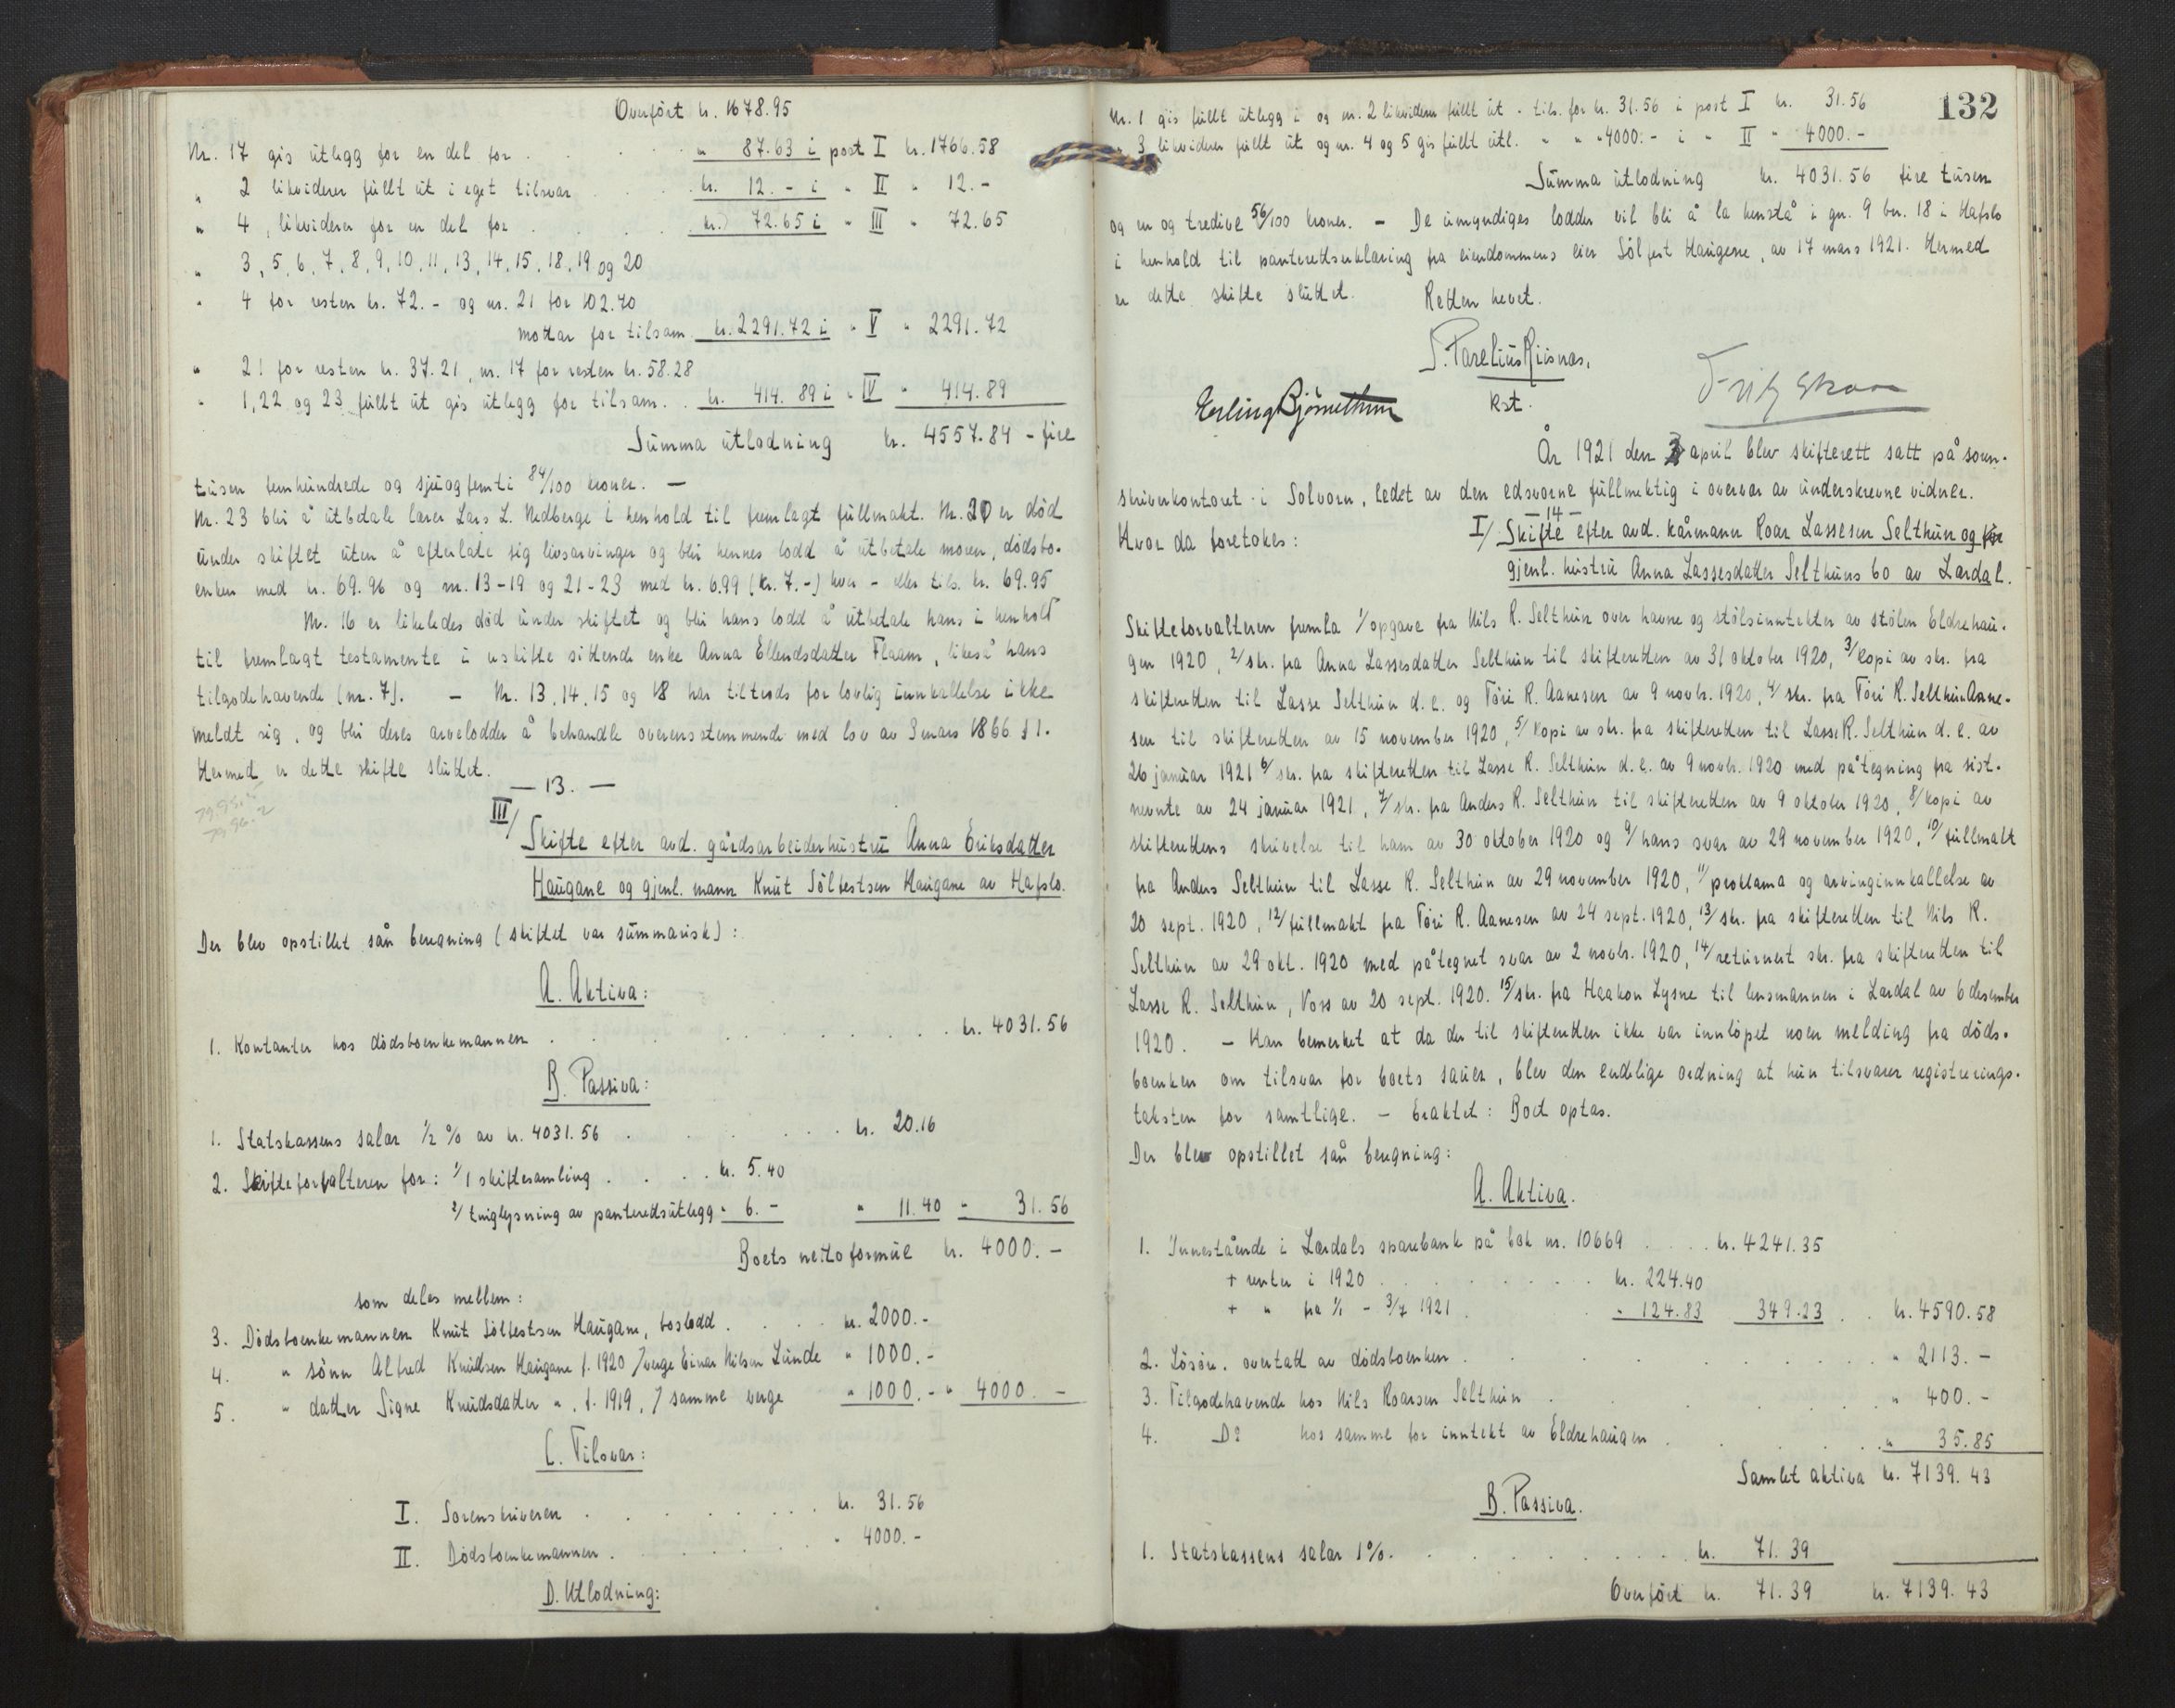 Overført kr. 1678.95
Nr. 17 gis utlegg for en del for . . . . " 87.63 i post I kr. 1766.58
" 2 likviderer fullt ut i eget tilsvar . . . kr. 12.- i " II " 12.-
" 4, likviderer for en del for . . . . kr. 72.65 i " III " 72.65
" 3, 5, 6, 7, 8, 9, 10, 11, 13, 14, 15, 18, 19 og 20
" 4 for resten kr. 72.- og nr. 21 for 102.40
mottar for tilsam. kr. 2291.72 i " V " 2291.72
" 21 for resten kr. 37.21, nr. 17 for resten kr. 58.28
" 1, 22 og 23 fullt ut gis utlegg for tilsam. . kr. 414.89 i " IV " 414.89
Summa utlodning kr. 4557.84 - fire
tusen femhundrede og sjuogfemti 84/100 kroner. —
Nr. 23 blir å utbetale lærer Lars L. Nedberge i henhold til fremlagt fullmakt. Nr. 20 er død
under skiftet uten å efterlate sig livsarvinger og blir hennes lodd å utbetale moren, dødsbo-
enken med kr. 69.96 og nr. 13-19 og 21-23 med kr. 6.99 (kr. 7.-) hver - eller tils. kr. 69.95
Nr. 16 er likeledes død under skiftet og blir hans lodd å utbetale hans i henhold
til fremlagt testamente i uskifte sittende enke Anna Ellendsdatter Flaam, likeså hans
tilgodehavende (nr. 7). — Nr. 13, 14, 15 og 18 har tiltrods for lovlig innkallelse ikke
meldt sig, og blir deres arvelodder å behandle overensstemmende med lov av 3 mars 1866 § 1.
Hermed er dette skifte sluttet.
— 13. —
III/ Skifte efter avd. gårdsarbeiderhustru Anna Eriksdatter
Haugane og gjenl. mann Knut Sølfestsen Haugane av Hafslo.
Der blev opstillet sån beregning (skiftet var summarisk):
A. Aktiva:
1. Kontanter hos dødsboenkemannen . . . . . . . . kr. 4031.56
B. Passiva:
1. Statskassens salær ½ % av kr. 4031.56 . . . . . kr. 20.16
2. Skifteforvalteren for: 1/ 1 skiftesamling . . . . kr. 5.40
2/ tinglysning av panteretsutlegg " 6.- " 11.40 " 31.56
Boets nettoformue kr. 4000.-
som deles mellem:
3. Dødsboenkemannen Knut Sølfestsen Haugane, boslodd . . . . kr. 2000.-
4. " sønn Alfred Knudsen Haugane f. 1920 / verge Einar Nilsen Lunde " 1000.-
5. " datter Signe Knudsdatter ", f. 1919, / samme verge " 1000.- " 4000.-
C. Tilsvar:
I. Sorenskriveren . . . . . . . kr. 31.56
II. Dødsboenkemannen . . . . . . " 4000.-
D. Utlodning:
132
Nr. 1 gis fullt utlegg i og nr. 2 likviderer fullt ut - tils. for kr. 31.56 i post I kr. 31.56
" 3 likviderer fullt ut og nr. 4 og 5 gis fullt utl. " " " 4000.- i " II " 4000.-
Summa utlodning kr. 4031.56 fire tusen
og en og tredive 56/100 kroner. — De umyndiges lodder vil bli å la henstå i gnr. 9 bnr. 18 i Hafslo
i henhold til panteretserklæring fra eiendommens eier Sølfest Haugene, av 17 mars 1921. Hermed
er dette skifte sluttet. Retten hevet.
S. Parelius Riisnæs,
kst.
Erling Bjørnethun
År 1921 den 3 april blev skifterett satt på soren-
skriverkontoret i Solvorn, ledet av den edsvorne fullmektig i overvær av underskrevne vidner.
— 14 —
Hvor da foretokes: I/ Skifte efter avd. kårmann Roar Lassesen Selthun og
gjenl. hustru Anna Lassesdatter Selthuns bo av Lærdal.
Skifteforvalteren fremla 1/ opgave fra Nils R. Selthun over havne og stølsinntekter av stølen Eldrehau-
gen 1920, 2/ skr. fra Anna Lassesdatter Selthun til skifteretten av 31 oktober 1920, 3/ kopi av skr. fra
skifteretten til Lasse Selthun d. e. og Tøri R. Aanesen av 9 novbr. 1920, 4/ skr. fra Tøri R. Selthun Aane-
sen til skifteretten av 15 november 1920, 5/ kopi av skr. fra skifteretten til Lasse R. Selthun d. e. av
26 januar 1921 6/ skr. fra skifteretten til Lasse R. Selthun d. e. av 9 novbr. 1920 med påtegning fra sist-
nevnte av 24 januar 1921, 7/ skr. fra Anders R. Selthun til skifteretten av 9 oktober 1920, 8/ kopi av
skifterettens skrivelse til ham av 30 oktober 1920 og 9/ hans svar av 29 november 1920, 10/ fullmakt
fra Anders Selthun til Lasse R. Selthun av 29 november 1920, 11/ proklama og arvinginnkallelse av
20 sept. 1920, 12/ fullmakt fra Tøri R. Aanesen av 24 sept. 1920, 13/ skr. fra skifteretten til Nils R.
Selthun av 29 okt. 1920 med påtegnet svar av 2 novbr. 1920, 14/ returnert skr. fra skifteretten til
Lasse R. Selthun, Voss av 20 sept. 1920. 15/ skr. fra Haakon Lysne til lensmannen i Lærdal av 6 desember
1920. — Man bemerket at da der til skifteretten ikke var innløpet noen melding fra døds-
boenken om tilsvar for boets sauer, blev den endelige ordning at hun tilsvarer registrerings-
taksten for samtlige. — Eraktet: Boet optas.
Der blev opstillet sån beregning:
A. Aktiva.
1. Innestående i Lærdals sparebank på bok nr. 10669 . . . . kr. 4241.35
+ renter i 1920 . . . . . . . . kr. 224.40
+ " fra 1/1 - 3/7 1921 . . . " 124.83 349.23 . . kr. 4590.58
2. Løsøre. overtatt av dødsboenken . . . . . . . . " 2113.-
3. Tilgodehavende hos Nils Roarsen Selthun . . . . . " 400.-
4. Do hos samme for inntekt av Eldrehaugen . . . . . " 35.85
Samlet aktiva kr. 7139.43
B. Passiva.
1. Statskassens salær 1%. . . . . . . . . kr. 71.39
Overført kr. 71.39 kr. 7139.43